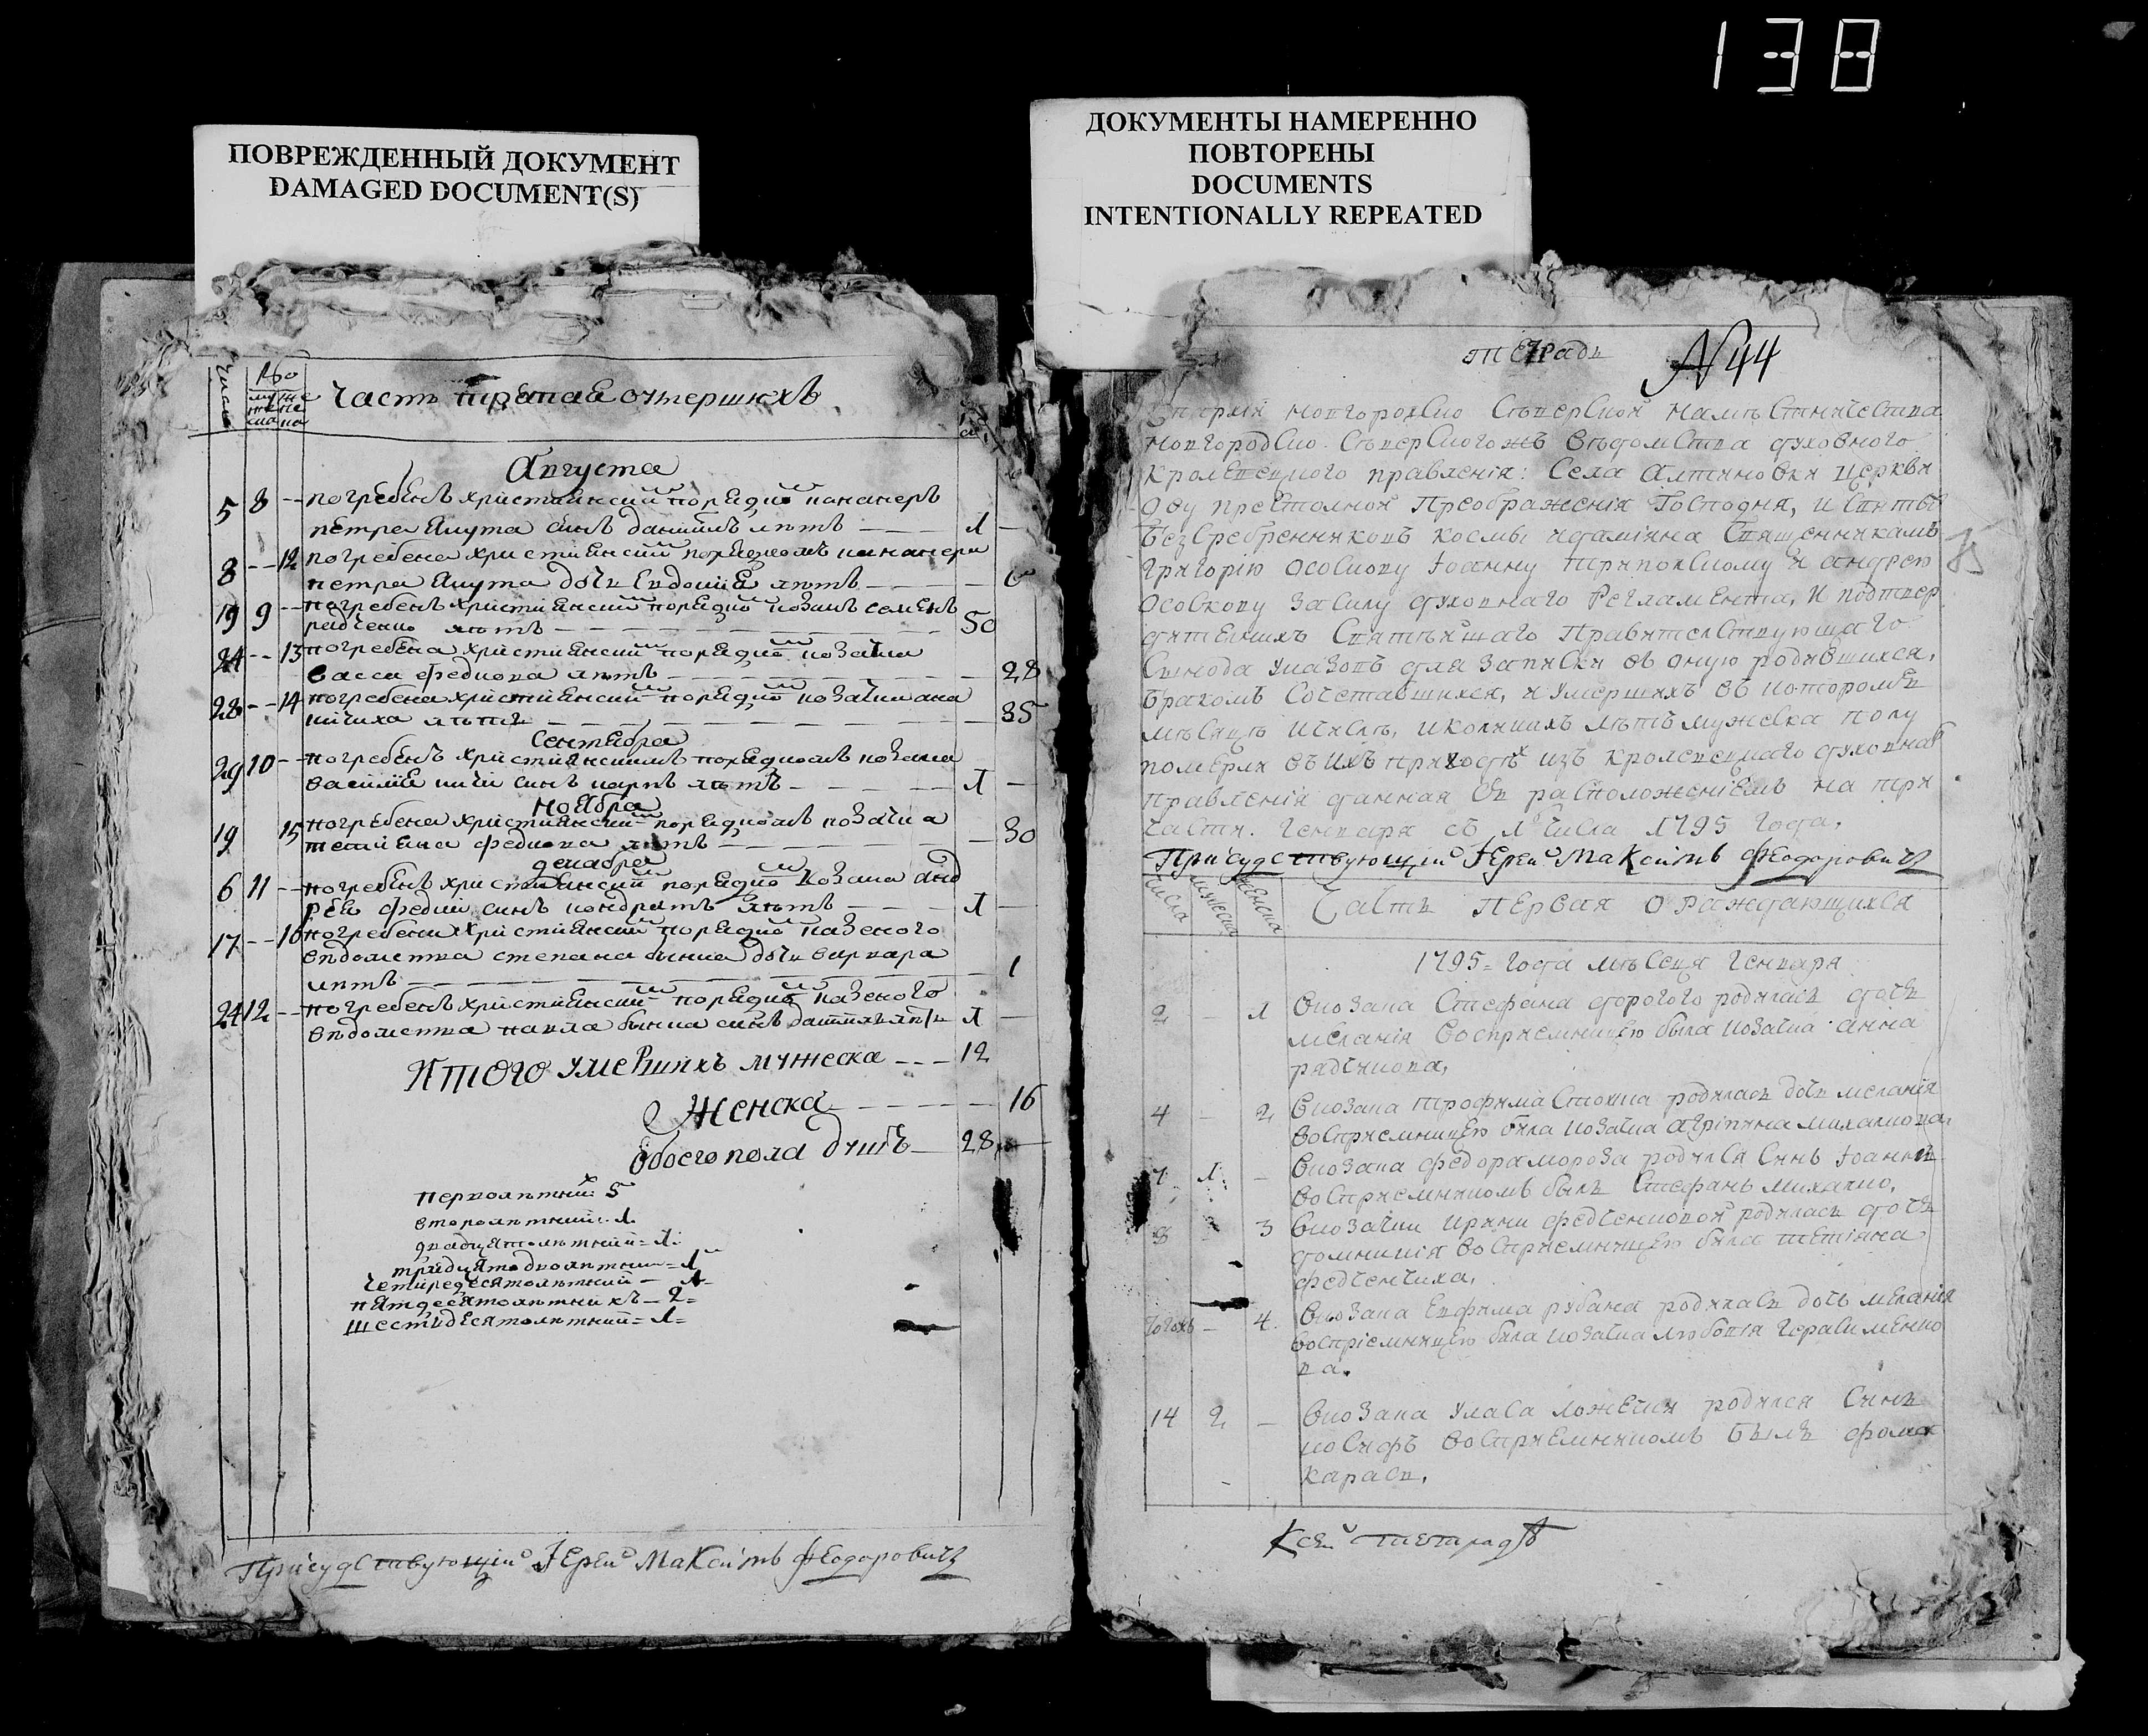 138
ПОВРЕЖДЕННЫЙ ДОКУМЕНТ
DAMAGED DOCUMENT(S)
ДОКУМЕНТЫ НАМЕРЕННО
ПОВТОРЕНЫ
DOCUMENTS
INTENTIONALLY REPEATED
Часть третая о умершихъ
Августа
5 8 -- погребенъ християнский порядко
петра сынъ даниилъ лѣтъ 1
8 -- 12 погребена християнский порядкомъ
петра дочь Евдокия лѣтъ
19 9 -- погребенъ християнский порядко козакъ семенъ
радченко лѣтъ 50
24 -- 13 погребена християнский порядко козачка
васса федкова лѣтъ 28
28 -- 14 погребена християнский порядко козачка
лѣтъ 35
Сентября
29 10 -- погребенъ християнскимъ порядкомъ козака
василия сынъ карпъ лѣтъ 1
Ноября
19 15 погребена християнский порядкомъ козачка
татияна федкова лѣтъ 30
декабря
6 11 -- погребенъ християнский порядко козака анд
рея сынъ кондратъ лѣтъ 1
17 -- 16 погребена християнский порядко казеного
вѣдомства степана дочь варвара
лѣтъ 1
24 12 -- погребенъ християнский порядко казеного
вѣдомства павла сынъ лѣтъ 1
Итого умершихъ мужеска 12
Женска 16
Обоего пола душъ 28
перволѣтний 5
второлѣтний 1
двадцятолѣтний = 1
тридцятоднолѣтний = 1
четиредесятолѣтний – 1
пятдесятолѣтнихъ – 2 =
шестидесятолѣтний = 1 =
Присудствующій Іерей Максимъ Феодоровичъ
тетрадь N 44
Епархіи новгородско сѣверской намѣстничества
новгородско сѣверскогожъ вѣдомства духовного
кролевецкого правленія: Села Алтиновки церкви
двупрестолной Преображенія Господня, и святы
безсребренниковъ космы и даміяна Священникамъ
григорію особкову іоанну и андрею
особкову за силу духовнаго Регламента, и подтвер
дителнихъ Святѣйшаго Правителствующаго
Синода указовъ для записки въ оную родившихся,
бракомъ Сочетавшихся, и умершихъ въ которомъ
мѣсяцѣ и числѣ, и коликихъ лѣтъ мужеска полу
померли въ ихъ приходѣ изъ кролевецкаго духовна
правленія данная съ расположеніемъ на три
части. Генваря съ 1 числа 1795 года,
Присудствующій Іерей Максимъ Феодоровичъ
числа мужеска женска Часть первая о раждающихся
1795 = года мѣсеця Генваря
2 – 1 В козака Стефана дорогого родилась дочь
меланія восприемницею была козачка анна
радчкова,
4 – 2 В козака трофима родилась дочь меланія
восприемницею была козачка агрипина михалкова,
7 1 – В козака федора мороза родился синъ іоаннъ
восприемникомъ былъ Стефанъ михалко,
3 В козачки ирини федченковой родилась дочь
домникія восприемницею была тетіяна
федченчиха,
тогожъ – 4. В козака Евфима рубана родилась дочь меланія
воспріемницею была козачка любовія Герасименко
ва.
14 2 – В козака власа родился Синъ
іосифъ восприемникомъ былъ фома
карась,
К сей тетрадѣ